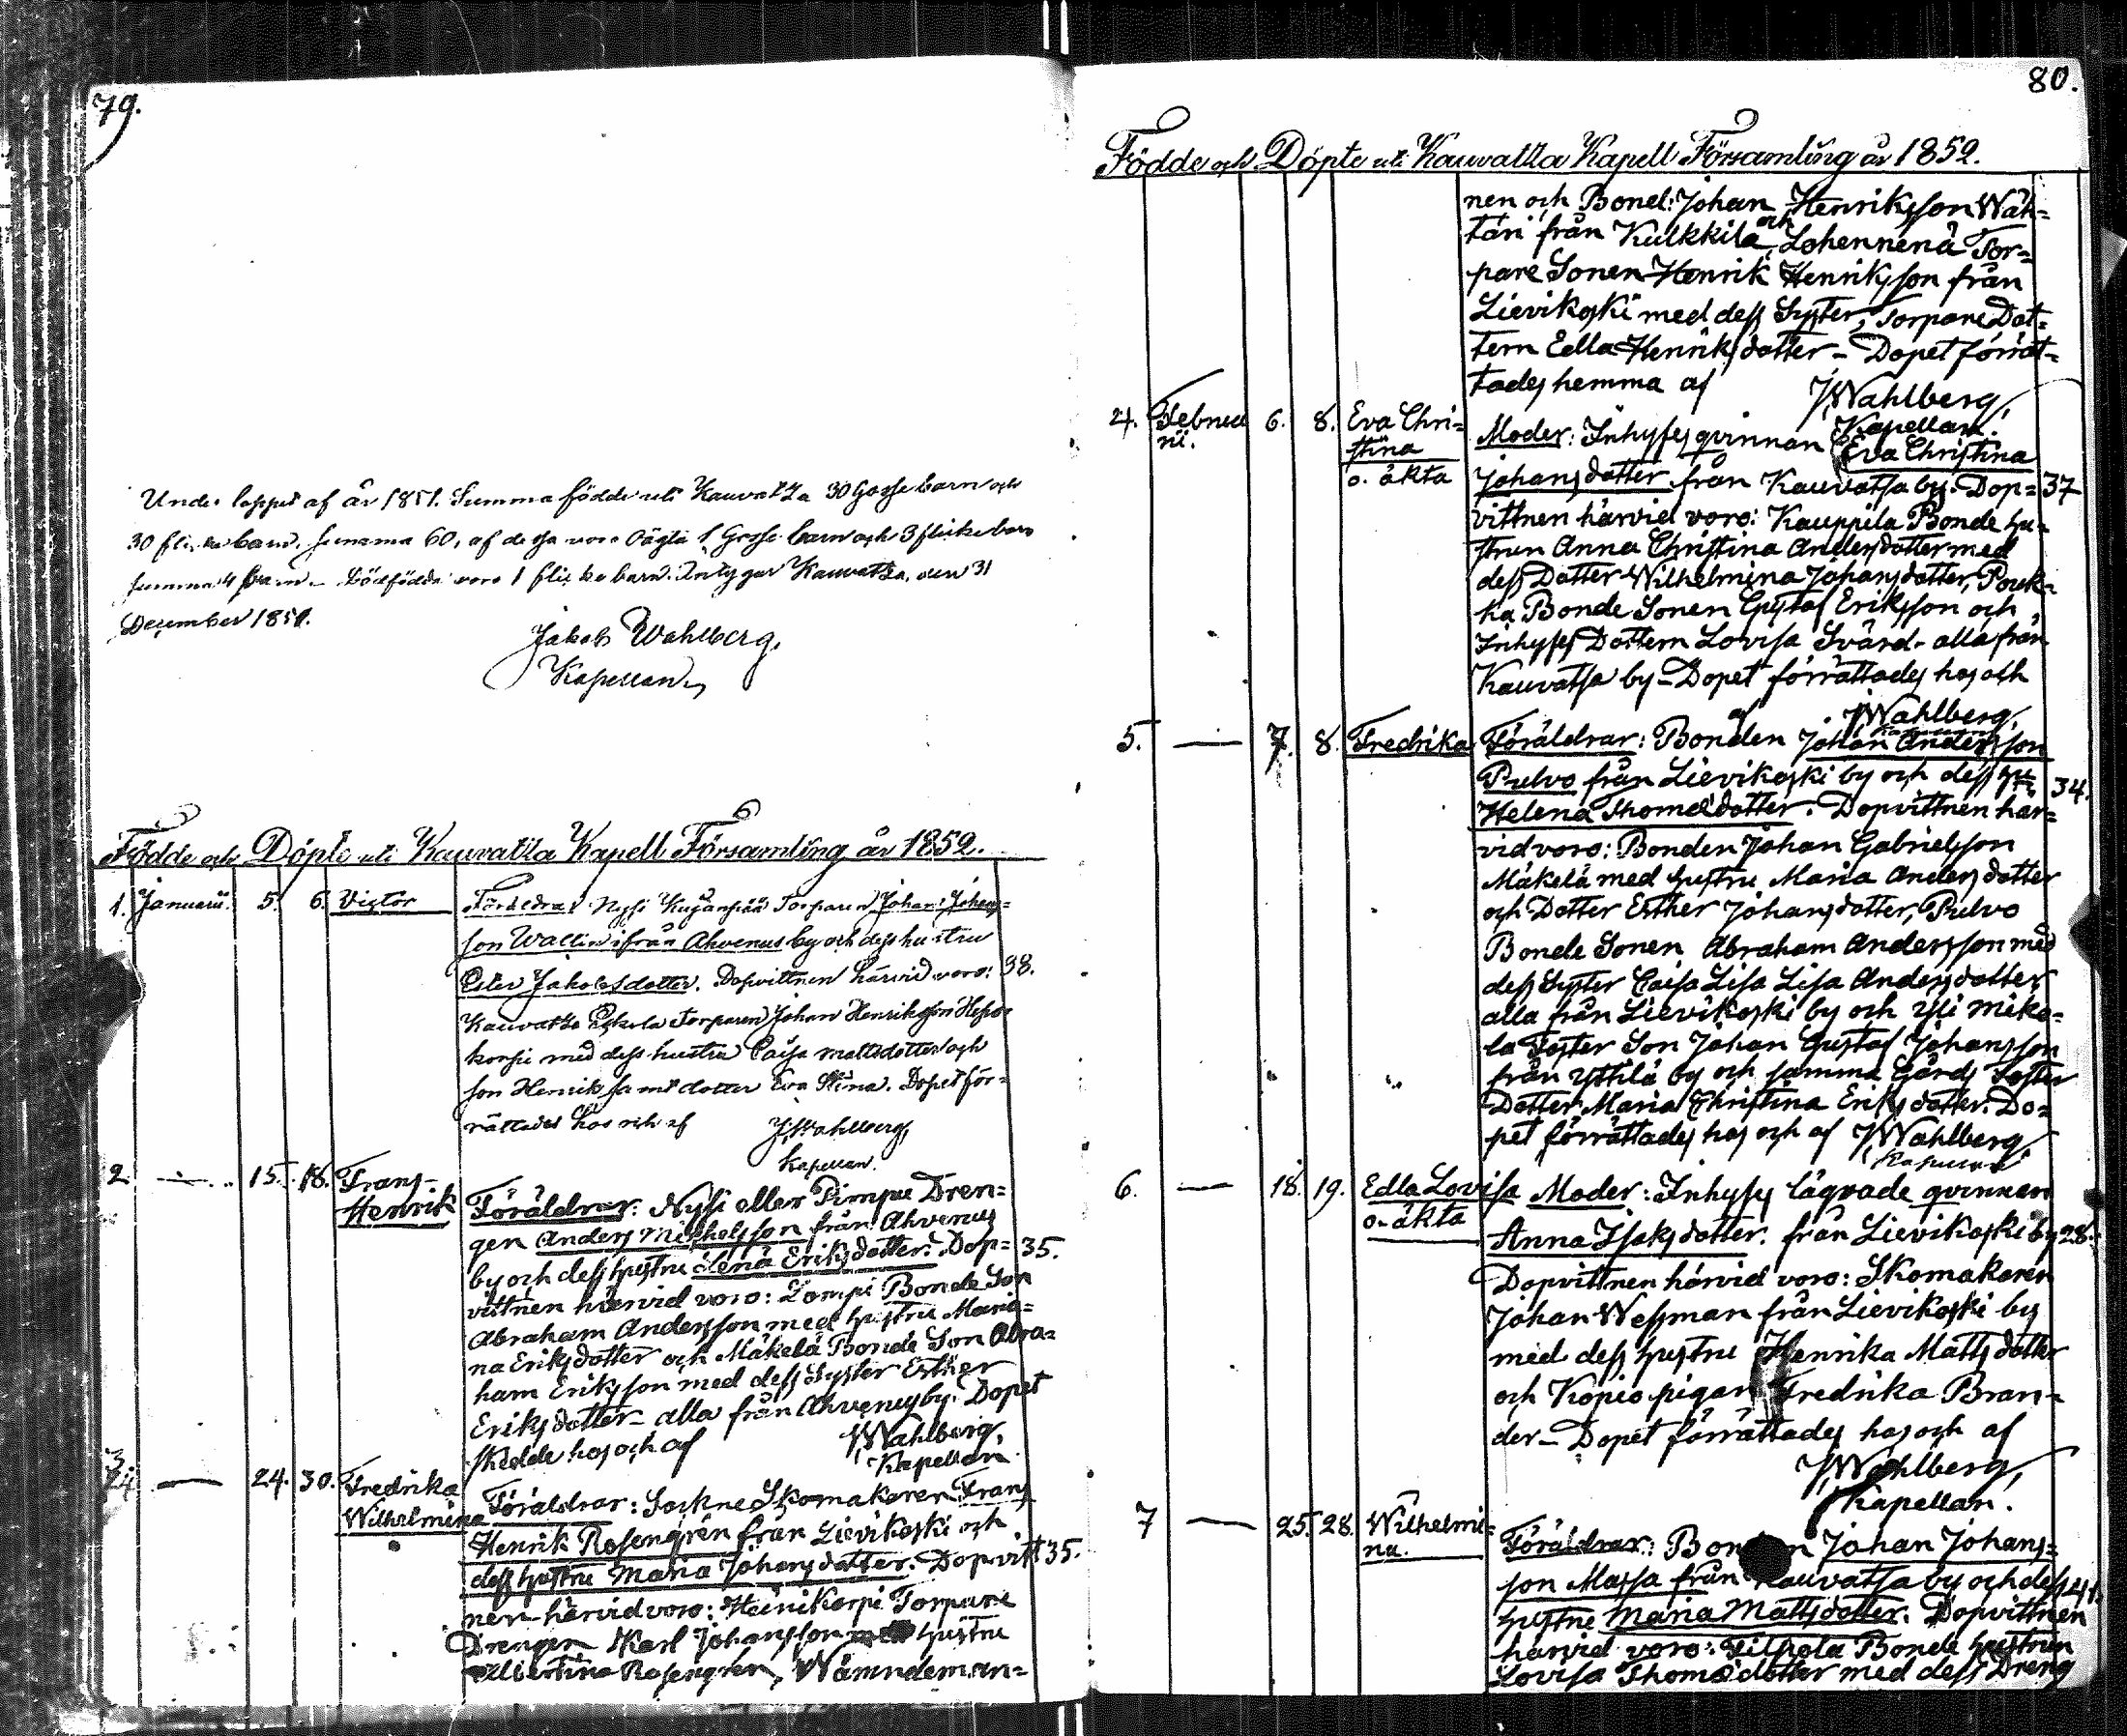 79.
Under loppet af år 1851. Summa födde uti Kauvatsa 30 Gosse barn och
30 flickebarn, summa 60, af dessa voro oägta 1 Gosse barn och 3 flickebarn
summa 4 barn. Dödfödda voro 1 flickebarn. Intygar Kauvatsa, den 31
December 1851.
Jakob Wahlberg,
Kapellan.
Födde och Döpte uti Kauvatsa Kapell Församling år 1852.
1. Januarii. 5. 6. Victor Föräldrar Nysi Torparen Johan Johans=
son Wallin ifrån Ahvenus by och dess hustru
Ester Jakobsdotter. Dopvittnen härvid voro: 38.
Kauvatsa Torparen Johan Henriksson
med dess hustru Caisa Mattsdotter och
son Henrik samt dotter Eva Stina. Dopet för=
rättades hos och af J. Wahlberg,
Kapellan.
2 — 15. 18. Frans-
Henrik Föräldrar: Nysi eller Pimpu Dren=
gen Anders Michelsson från Ahvenus
by och dess hustru Lena Eriksdotter. Dop= 35.
vittnen härvid voro: Lompi Bonde Son
Abraham Andersson med hustru Maria=
na Eriksdotter och Mäkelä Bonde Son Abra=
ham Eriksson med dess Syster Esther
Eriksdotter – alla från Ahvenus by. Dopet
skedde hos och af J. Wahlberg,
Kapellan.
3. — 24. 30. Fredrika
Wilhelmina Föräldrar: Sockne Skomakaren Frans
Henrik Rosengrén från Lievikoski och
dess hustru Maria Johansdotter. Dopvitt 35.
nen härvid voro: Heinikorpi Torpare
Drengen Karl Johansson med hustru
Albertina Rosengrén, Nämndeman=
80.
Födde och Döpte uti Kauvatsa Kapell Församling år 1852.
nen och Bond: Johan Henriksson Wäh=
täri från Kulkkila och Lohennenä Tor=
pare Sonen Henrik Henriksson från
Lievikoski med dess Syster, Torpare Dot=
tern Edla Henriksdotter – Dopet förrät=
tades hemma af J. Wahlberg,
Kapellan.
4. Februa
rii. 6. 8. Eva Chri=
stina
o. äkta Moder: Inhyses qvinnan Eva Christina
Johansdotter från Kauvatsa by. Dop= 37
vittnen härvid voro: Kauppila Bonde hu=
strun Anna Christina Andersdotter med
dess Dotter Wilhelmina Johansdotter, Pouk=
ka Bonde Sonen Gustaf Eriksson och
Inhyses Dottern Lovisa Svärd – alla från
Kauvatsa by – Dopet förrättades hos och
af J. Wahlberg,
5. — 7. 8. Fredrika Föräldrar: Bonden Johan Andersson
Pulvo från Lievikoski by och dess hu= 34.
Helena Thomasdotter. Dopvittnen här=
vid voro: Bonden Johan Gabrielsson
Mäkelä med hustru Maria Andersdotter
och Dotter Esther Johansdotter, Pulvo
Bonde Sonen Abraham Andersson med
dess Syster Caisa Lisa Lisa Andersdotter
alla från Lievikoski by och Yli Miko=
la Foster Son Johan Gustaf Johansson
från Yttilä by och samma Gårds Foster
Dotter Maria Christina Eriksdotter. Do=
pet förrättades hos och af J. Wahlberg
Kapellan
6. — 18. 19. Edla Lovisa
o. äkta Moder: Inhyses lägrade qvinnan
Anna Isaksdotter från Lievikoski by 28.
Dopvittnen härvid voro: Skomakaren
Johan Wessman från Lievikoski by
med dess hustru Henrika Mattsdotter
och Kopio pigan Fredrika Bran=
der – Dopet förrättades hos och af
J. Wahlberg,
Kapellan.
7 — 25. 28. Wilhelmi=
na. Föräldrar: Bonden Johan Johans=
son Massa från Kauvatsa by och dess 41.
hustru Maria Mattsdotter. Dopvittnen
härvid voro: Bonde hustrun
Lovisa Thomasdotter med dess Dreng